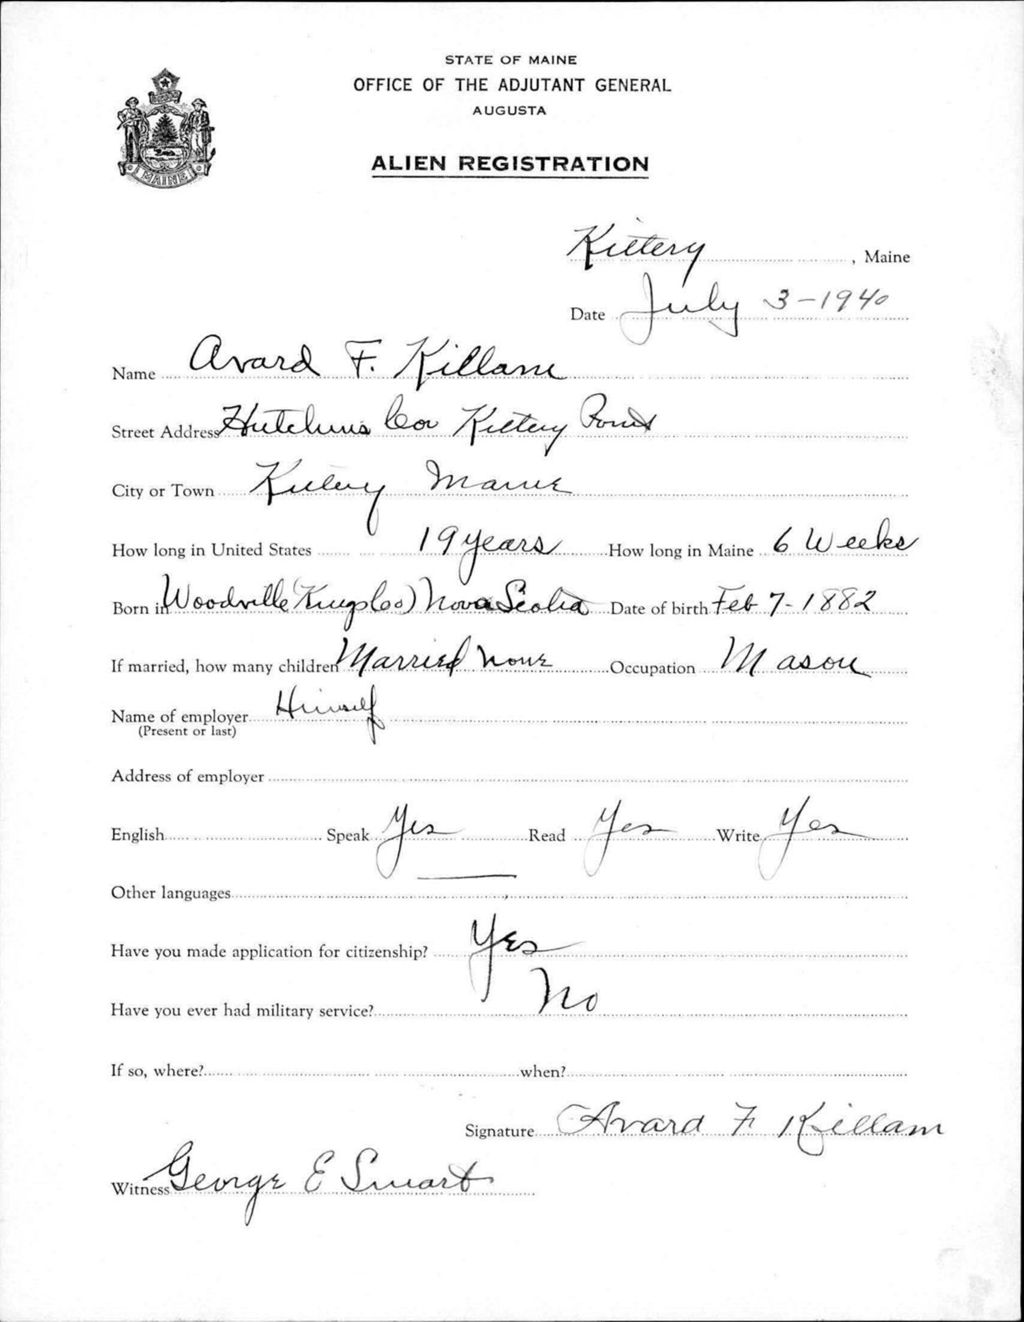 STATE OF MAINE
OFFICE OF THE ADJUTANT GENERAL
AUGUSTA
ALIEN REGISTRATION
MAINE
Kittery, Maine
Date July 3-1940
Name Avard F. Killam
Street Address Hutchins Cor Kittery Point
City or Town Kittery Maine
How long in United States 19 years How long in Maine 6 Weeks
Born in Woodville (Kings Co) Nova Scotia Date of birth Feb 7-1882
If married, how many children Married none Occupation Mason
Name of employer Himself
(Present or last)
Address of employer
English Speak Yes Read Yes Write Yes
Other languages
Have you made application for citizenship? Yes
Have you ever had military service? No
If so, where? when?
Signature Avard F Killam
Witness George E Smart